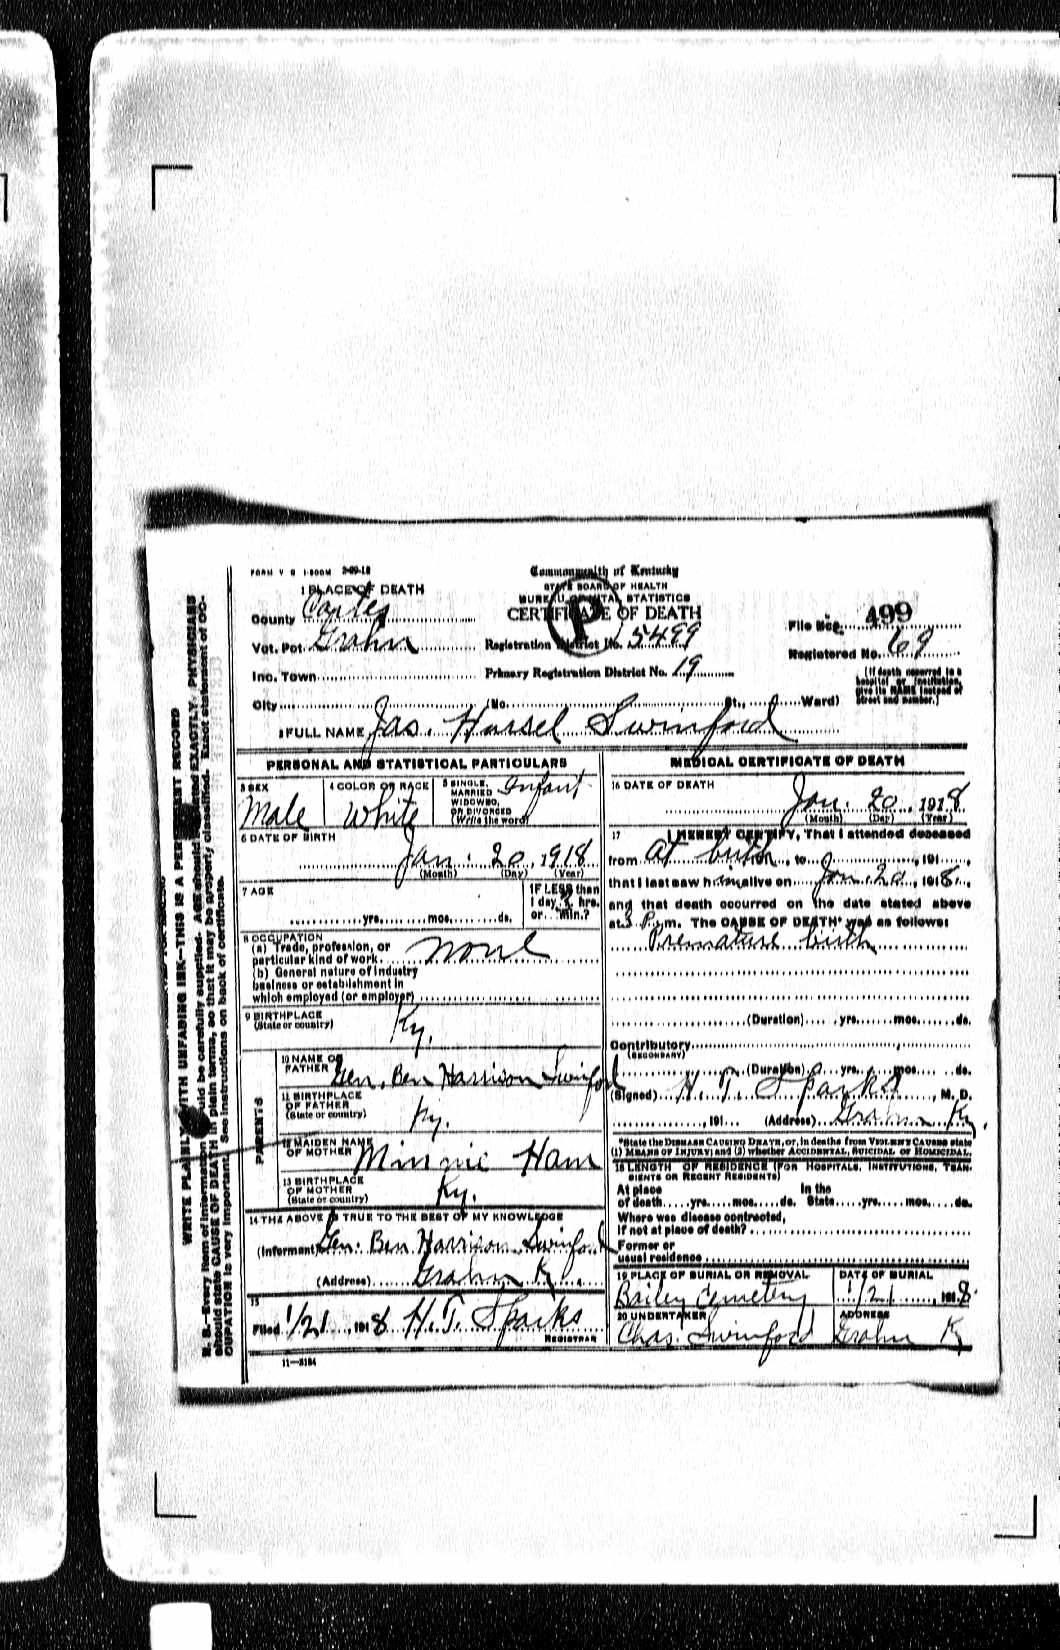 FORM V S 1-500M 2-09-18
Commonwealth of Kentucky
STATE BOARD OF HEALTH
BUREAU OF VITAL STATISTICS
CERTIFICATE OF DEATH
P
1 PLACE OF DEATH
County Carter
Vot. Pct. Grahn
Inc. Town
City (No. St., Ward)
Registration District No. 5499
Primary Registration District No. 19
File No. 499
Registered No. 69
(If death occurred in a hospital or institution, give its NAME instead of street and number.)
2 FULL NAME Jas. Hassel Swinford
PERSONAL AND STATISTICAL PARTICULARS
3 SEX
Male
4 COLOR OR RACE
White
5 SINGLE, MARRIED WIDOWED, OR DIVORCED (Write the word)
Infant
6 DATE OF BIRTH
Jan. 20, 1918
(Month) (Day) (Year)
7 AGE
yrs. mos. ds.
IF LESS than 1 day 2 hrs. or min.?
8 OCCUPATION
(a) Trade, profession, or
particular kind of work none
(b) General nature of industry
business or establishment in
which employed (or employer)
9 BIRTHPLACE
(State or country) Ky.
PARENTS
10 NAME OF FATHER Gen. Ben Harrison Swinford
11 BIRTHPLACE OF FATHER (State or country) Ky.
12 MAIDEN NAME OF MOTHER Minnie Ham
13 BIRTHPLACE OF MOTHER (State or country) Ky.
14 THE ABOVE IS TRUE TO THE BEST OF MY KNOWLEDGE
(Informant) Gen. Ben Harrison Swinford
(Address) Grahn Ky.
15
Filed 1/21, 1918 H. T. Sparks
REGISTRAR
11-3184
MEDICAL CERTIFICATE OF DEATH
16 DATE OF DEATH
Jan. 20, 1918
(Month) (Day) (Year)
17 I HEREBY CERTIFY, That I attended deceased
from At birth, to , 191 ,
that I last saw him alive on Jan 20, 1918,
and that death occurred on the date stated above
at 3 P. m. The CAUSE OF DEATH* was as follows:
Premature birth
(Duration) yrs. mos. ds.
Contributory
(SECONDARY)
(Duration) yrs. mos. ds.
(Signed) H. T. Sparks, M. D.
, 191 (Address) Grahn Ky.
*State the DISEASE CAUSING DEATH, or, in deaths from VIOLENT CAUSES state
(1) MEANS OF INJURY; and (2) whether ACCIDENTAL, SUICIDAL OR HOMICIDAL.
18 LENGTH OF RESIDENCE (FOR HOSPITALS, INSTITUTIONS, TRANSIENTS OR RECENT RESIDENTS)
At place In the
of death yrs. mos. ds. State yrs. mos. ds.
Where was disease contracted,
if not at place of death?
Former or
usual residence
19 PLACE OF BURIAL OR REMOVAL
Bailey Cemetery
DATE OF BURIAL
1/21, 1918
20 UNDERTAKER
Chas. Swinford
ADDRESS
Grahn Ky
WRITE PLAINLY WITH UNFADING INK—THIS IS A PERMANENT RECORD
N. B.—Every item of information should be carefully supplied. AGE should be stated EXACTLY. PHYSICIANS
should state CAUSE OF DEATH in plain terms, so that it may be properly classified. Exact statement of OC-
CUPATION is very important. See instructions on back of certificate.